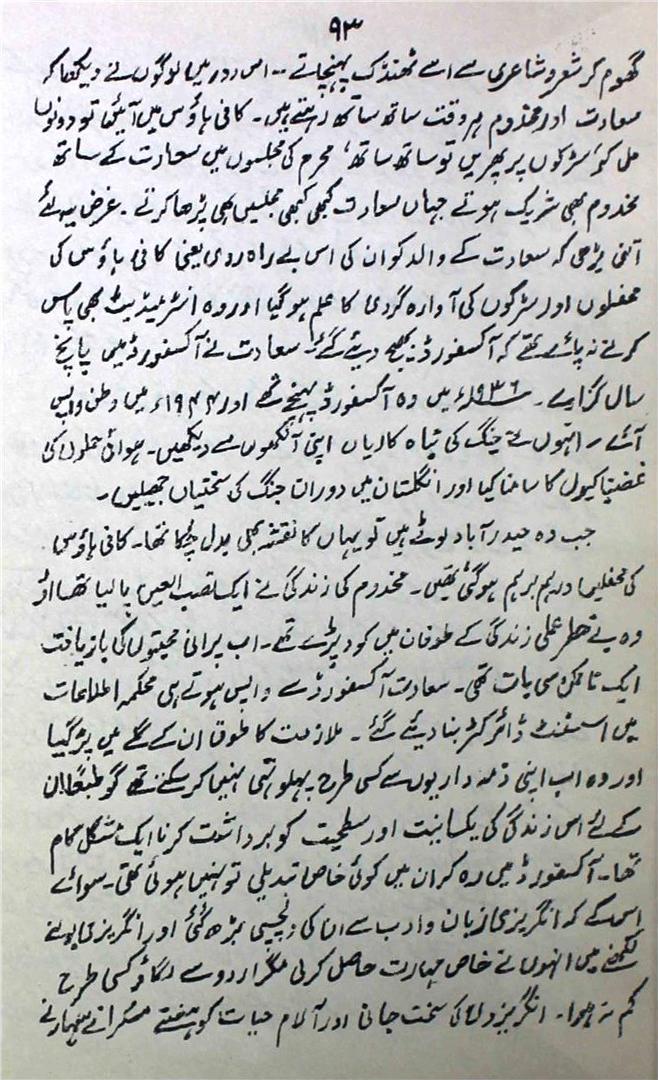 ۹۳
گھوم کر شعر و شاعری سے اسے ٹھنڈک پہنچاتے ۔۔ اس دور میں لوگوں نے دیکھا کہ
سعادت اور مخدوم ہر وقت ساتھ ساتھ رہتے ہیں۔ کافی ہاؤس میں آئیں تو دونوں
مل کر، سڑکوں پر پھریں تو ساتھ ساتھ، محرم کی مجلسوں میں سعادت کے ساتھ
مخدوم بھی شریک ہوتے جہاں سعادت کبھی کبھی مجلسیں بھی پڑھا کرتے ۔ غرض یہ لئے
اتنی بڑھی کہ سعادت کے والد کو ان کی اس بے راہ روی یعنی کافی ہاؤس کی
محفلوں اور سڑکوں کی آوارہ گردی کا علم ہو گیا اور وہ انٹرمیڈیٹ بھی پاس
کرنے نہ پائے تھے کہ آکسفورڈ بھیج دیئے گئے۔ سعادت نے آکسفورڈ میں پانچ
سال گزارے۔ ۱۹۳۶ء میں وہ آکسفورڈ پہنچے تھے اور ۱۹۴۴ء میں وطن واپس
آئے ۔ انہوں نے جنگ کی تباہ کاریاں اپنی آنکھوں سے دیکھیں۔ ہوائی حملوں کی
غضبناکیوں کا سامنا کیا اور انگلستان میں دوران جنگ کی سختیاں جھیلیں۔
جب وہ حیدرآباد لوٹے ہیں تو یہاں کا نقشہ ہی بدل چکا تھا۔ کافی ہاؤس
کی محفلیں درہم برہم ہو گئی تھیں۔ مخدوم کی زندگی نے ایک نصب العین پا لیا تھا اور
وہ بے خطر عملی زندگی کے طوفان میں کود پڑے تھے۔ اب پرانی محبتوں کی بازیافت
ایک ناممکن سی بات تھی۔ سعادت آکسفورڈ سے واپس ہوتے ہی محکمہ اطلاعات
میں اسسٹنٹ ڈائرکٹر بنا دیئے گئے ۔ ملازمت کا طوق ان کے گلے میں پڑ گیا
اور وہ اب اپنی ذمہ داریوں سے کسی طرح پہلو تہی نہیں کر سکتے تھے گو طبعاً ان
کے لئے اس زندگی کی یکسانیت اور سطحیت کو برداشت کرنا ایک مشکل کام
تھا۔ آکسفورڈ میں رہ کر ان میں کوئی خاص تبدیلی تو نہیں ہوئی تھی۔ سوائے
اس کے کہ انگریزی زبان و ادب سے ان کی دلچسپی بڑھ گئی اور انگریزی بولنے
لکھنے میں انہوں نے خاص مہارت حاصل کر لی مگر اردو سے لگاؤ کسی طرح
کم نہ ہوا۔ انگریزوں کی سخت جانی اور آلام حیات کو ہنستے مسکراتے سہارنے